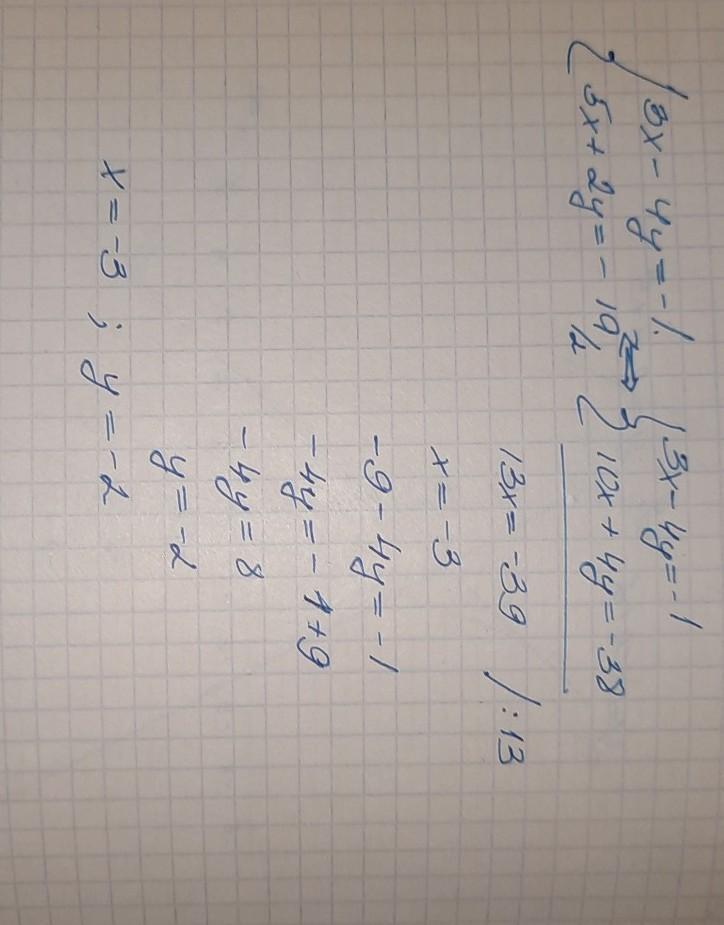 { 3x - 4y = -1
5x + 2y = - 19 /·2 <=> { 3x - 4y = -1
10x + 4y = -38
13x = -39 /:13
x = -3
-9 - 4y = -1
-4y = - 1 + 9
-4y = 8
y = -2
x = -3 ; y = -2